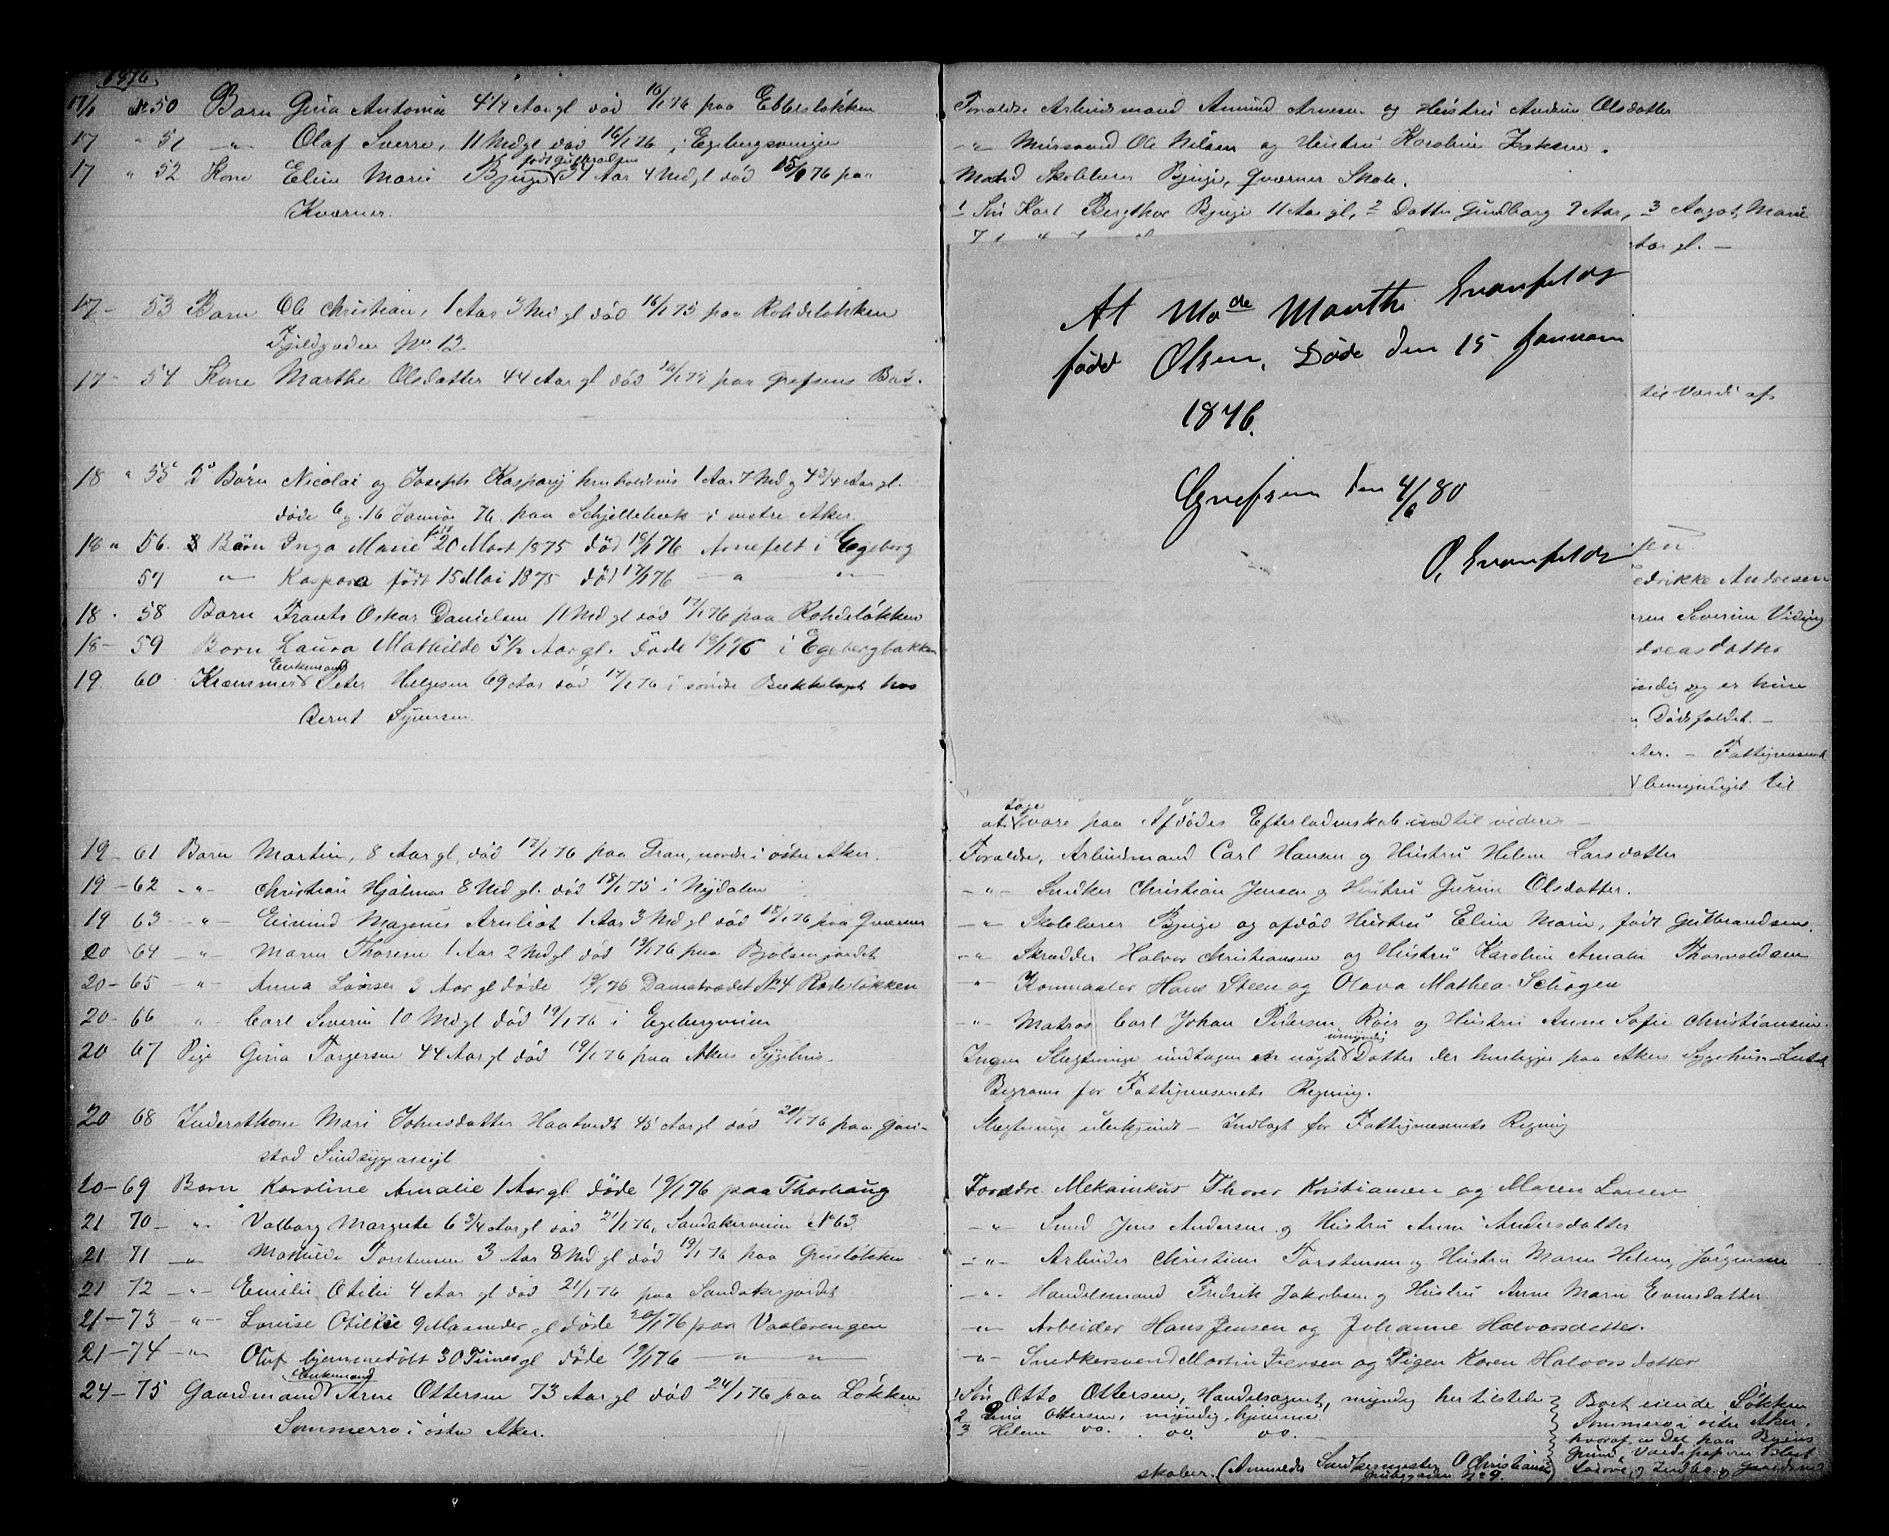 1876.
17/1 № 50 Barn Gina Antonia 4 1/4 Aar gl død 16/1 76 paa Ebbesløkken
17 " 51 -"- Olaf Sverre, 11 Md gl død 16/1 76 i Egebergsveigen
17 " 52 Kone Elin Marie Bjuge født Gulbrandsen 37 Aar 4 Md gl død 15/1 76 paa
Kværner.
17 - 53 Barn Ole Christian, 1 Aar 3 Md gl død 16/1 75 paa Rohdeløkken
Fjeldgaden No 12
17 - 54 Kone Marthe Olsdatter 44 Aar gl død paa Grefsens Bad.
18 " 55 2 Børn Nicolai og Joseph Kaspary henholdsvis 1 Aar 7 Md og 4 3/4 Aar gl.
døde 6 og 16 Januar 76 paa Schjellebæk i vestre Aker.
18 " 56. Børn Inga Marie født 20 Mart 1875 død 18/1 76 Arnefelt i Egeberg
57 -"- Kaspara født 15 Mai 1875 død 17/1 76 -"- -"-
18 - 58 Barn Frants Oskar Danielsen 11 Md gl død 17/1 76 paa Rohdeløkken
18 - 59 Barn Laura Mathilde 5 1/2 Aar gl. døde 18/1 76 i Egebergbakken
19. 60 Kræmmer Enkemand Peter Helgesen 69 Aar død 17/1 76 i søndre Bækkelaget hos
Bernt Syversen.
19 - 61 Barn Martin, 8 Aar gl, død 17/1 76 paa Tran, nordre i østre Aker.
19 - 62 -"- Christian Hjalmar 8 Md gl. død 18/1 75 i Nydalen
19 63 -"- Eivind Magnus Arnliot 1 Aar 3 Md gl død 18/1 76 paa Qværner
20 64 -"- Maren Thorine 1 Aar 2 Md gl død 19/1 76 paa Bjølsenjordet
20 - 65 -"- Anna Lovise 3 Aar gl døde 19/1 76 Damstrædet № 4 Rodeløkken
20 - 66 -"- Carl Severin 10 Md gl død 19/1 76 i Egebergveien
20 67 Pige Gina Torgersen 44 Aar gl død 19/1 76 paa Akers Sygehus.
20 68 Inderstkone Mari Johnsdatter Haatvedt 45 Aar gl død 20/1 76 paa Gau-
stad Sindsygeasyl
20 - 69 Barn Karoline Amalie 1 Aar gl døde 19/1 76 paa Thorhaug
21 70 - -"- Valborg Margrete 6 3/4 Aar gl død 21/1 76, Sandakerveien № 63
21 71 -"- Mathilde Torstensen 3 Aar 8 Md gl død 19/1 76 paa Grünløkken
21 72 -"- Emilie Otilie 4 Aar gl død 21/1 76 paa Sandakerjordet
21 - 73 -"- Louise Otilie 9 Maaneder gl døde 20/1 76 paa Vaalerengen
21 - 74 -"- Oluf hjemmedøbt 30 Timer gl døde 19/1 76 -"- -"-
24 - 75 Gaardmand Enkemand Arne Ottersen 73 Aar gl død 24/1 76 paa Løkken
Sommerro i østre Aker.
Forældre Arbeidsmand Amund Arnesen og Hustru Andrine Olsdatter
-"- Mursvend Ole Nilsen og Hustru Karoline
Mand Skolelærer Bjuge, Qværner Skole.
1 Søn Karl Bergthor Bjuge 11 Aar gl, 2 Datter Gudborg 9 Aar, 3 Aagot Marie
Aar gl. -
At Mo de Marthe Svanfeldt
født Olsen, Døde den 15 Januar
1876.
Grefsen den 4/6 80
O, Svanfeldt
til Værdi af
pen.
edrikke Andresen
ren Severin Viding
dreasdatter
myndig og er hun
Dødsfaldet. -
ter. - Fattigvæsenet
bemyndiget til
at tage vare paa Afdødes Efterladenskab indtil videre -
Forældre, Arbeidsmand Carl Hansen og Hustru Helene Larsdatter
-"- Snedker Christian Jensen og Hustru Gurine Olsdatter.
-"- Skolelærer Bjuge og afdød Hustru Elin Marie, født Gulbrandsen.
-"- Skrædder Halvor Christiansen og Hustru Karoline Amalie Thorvaldsen
-"- Kornmaaler Hans Steen og Olava Mathea Schøgen
-"- Matros Carl Johan Pedersen Røer og Hustru Anne Sofie Christiansen.
Ingen Slægtninge undtagen en uægte umyndig Datter der henligger paa Akers Sygehus -
Begraves for Fattigvæsenets Regning.
Slægtninge ubekjendt - Indlagt for Fattigvæsenets Regning
Forældre Mekanikus Thorer Kristiansen og Maren Larsen
-"- Smed Jens Andersen og Hustru Anne Andersdatter
-"- Arbeider Christian Torstensen og Hustru Maren Helene Jørgensen
-"- Handelsmand Fredrik Jakobsen og Hustru Anne Marie Evensdatter
-"- Arbeider Hans Jensen og Johanne Halvorsdatter.
-"- Snedkersvend Martin Iversen og Pigen Karen Halvorsdatter
1 Søn Otto Ottersen, Handelsagent, myndig her tilstede
2 Gina Ottersen, myndig, hjemme
3 Helene do. do. do.
Boet eiende Løkken
Sommerro i østre Aker,
hvoraf en Del paa Byens
Grund, Værdipapirer
Løsøre, og Indbo og Gaardsred
skaber. (Anmeldt Snedkermester O Christiansen
Grubegaden No 9.)